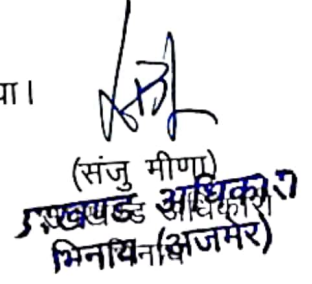 या।
(संजु मीणा)
उपखण्ड अधिकारी
भिनाय (अजमेर)